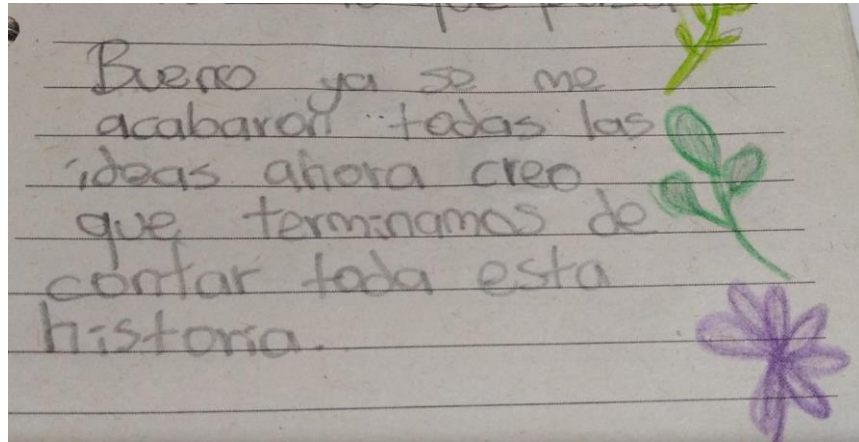 Bueno ya se me
acabaron todas las
ideas ahora creo
que terminamos de
contar toda esta
historia.